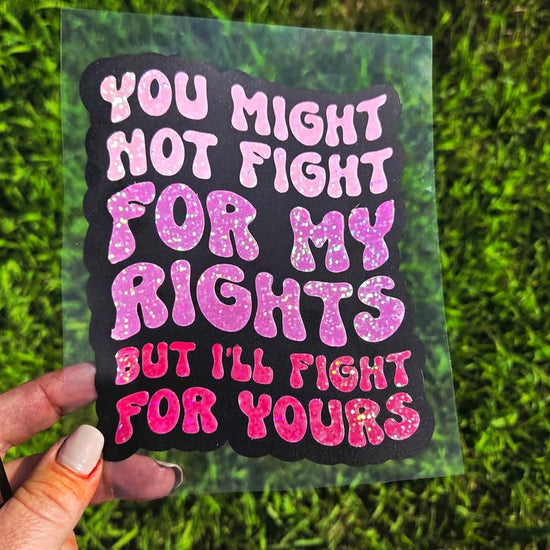 YOU MIGHT
NOT FIGHT
FOR MY
RIGHTS
BUT I'LL FIGHT
FOR YOURS